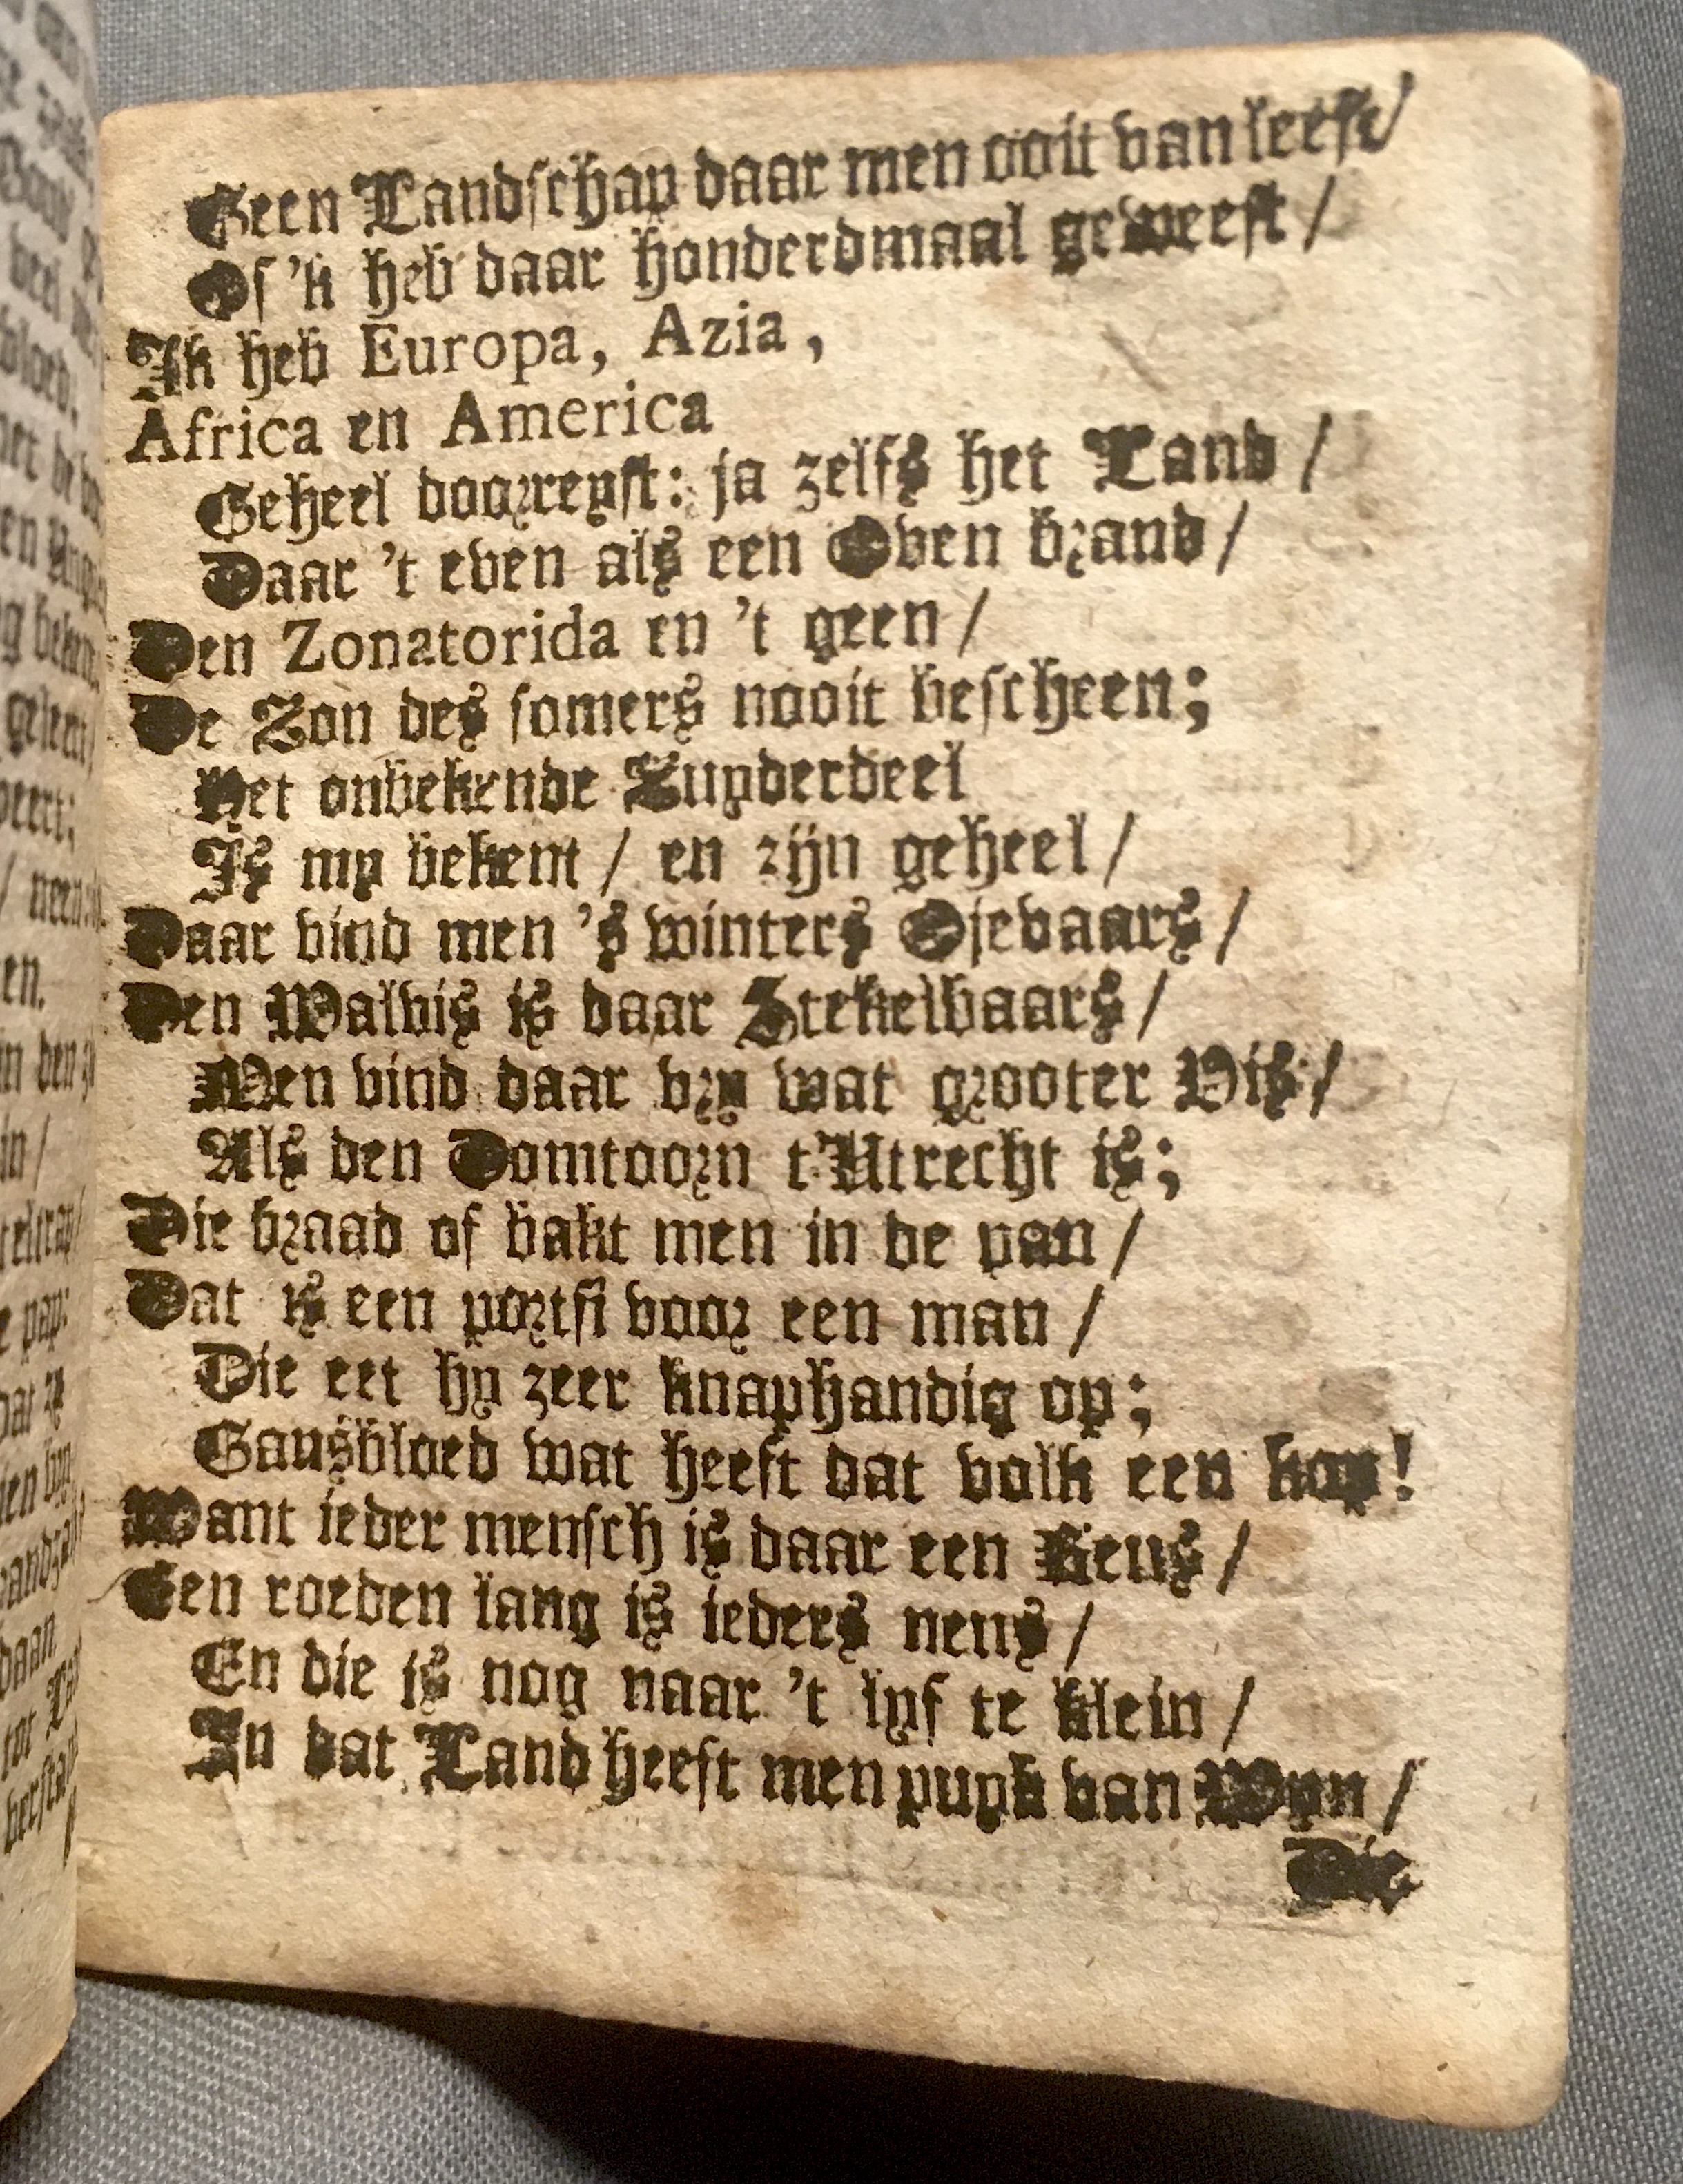 Geen Landschap daar men ooit van leest/
Of 'k heb daar honderdmaal geweest /
Ik heb Europa, Azia,
Africa en America
Geheel doorreyst: ja zelfs het Land /
Daar 't even als een Oven brand /
Den Zonatorida en 't geen /
De Zon des somers nooit bescheen;
Het onbekende Zuyderdeel
Is my bekent / en zijn geheel /
Daar vind men 's winters Ojevaars /
Den Walvis is daar Stekelbaars /
Men vind daar vry wat grooter Vis /
Als den Domtoorn t'Utrecht is;
Die braad of bakt men in de pan /
Dat is een portsi voor een man /
Die eet hy zeer knaphandig op;
Gansbloed wat heeft dat volk een kop!
Want ieder mensch is daar een Reus /
Een roeden lang is ieders neus /
En die is nog naar 't lyf te klein /
In dat Land heeft men puyk van Wyn /
Die